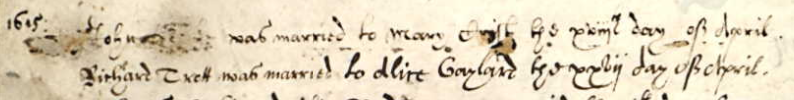 1615. John was married to Mary the xviijt day off Aprill.
Richard Trott was married to Alice Gaylard the xxvii day off Aprill.